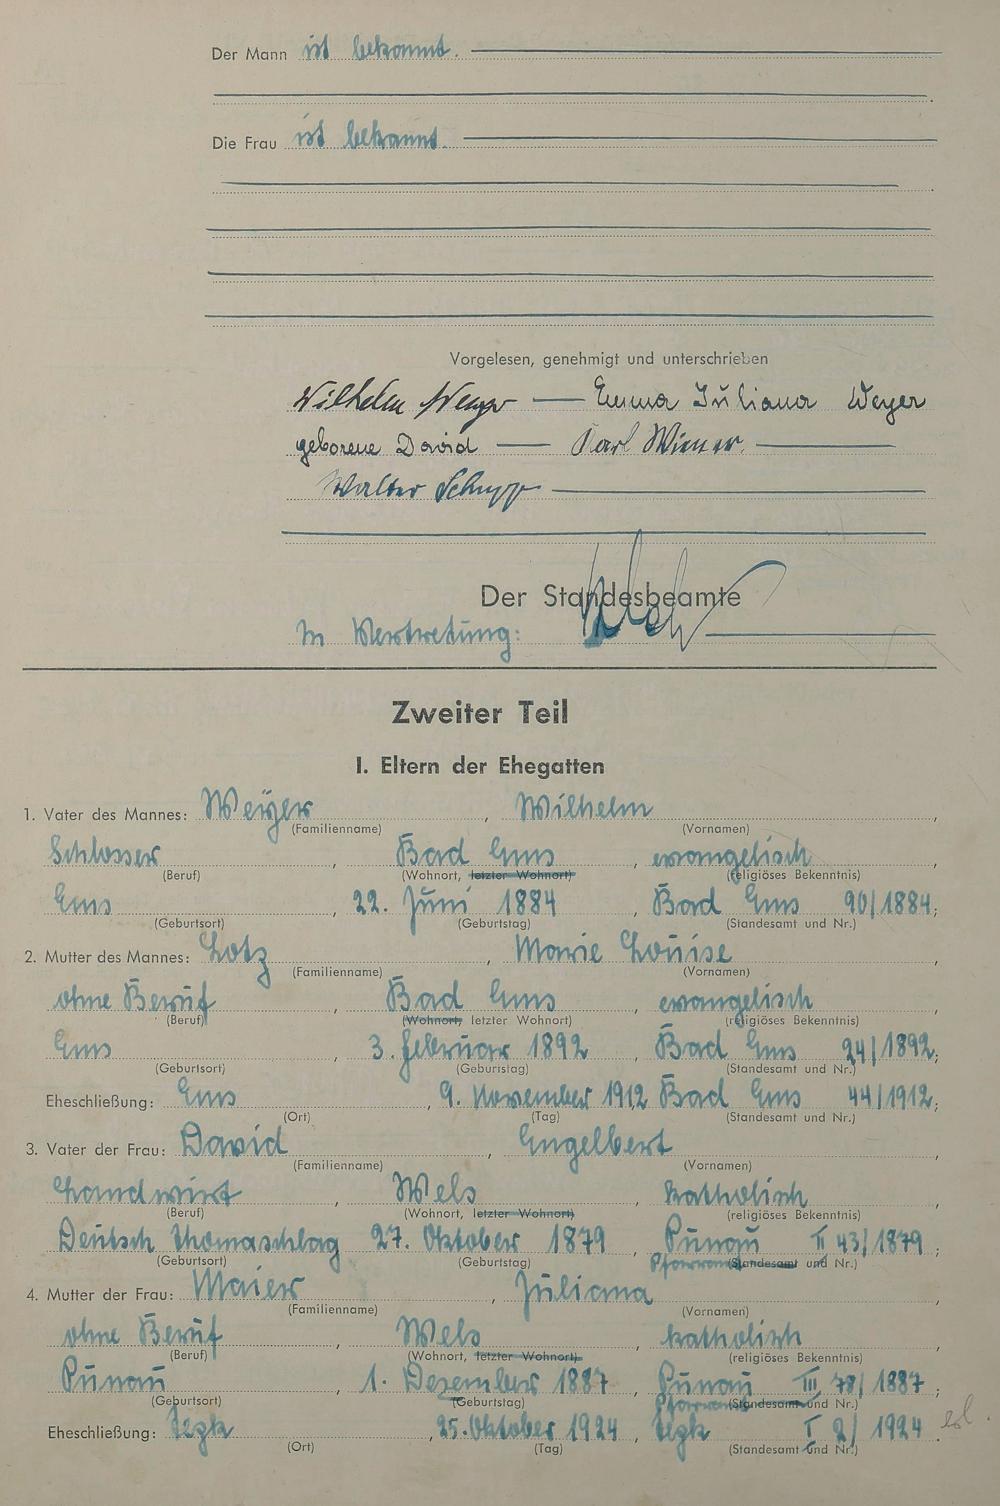 Der Mann ist bekannt.
Die Frau ist bekannt.
Vorgelesen, genehmigt und unterschrieben
Wilhelm Weyer — Emma Juliana Weyer
geborene David — Karl Wiener.
Walter Schupp
Der Standesbeamte
In Vertretung:
Zweiter Teil
I. Eltern der Ehegatten
1. Vater des Mannes: Weyer, Wilhelm,
(Familienname) (Vornamen)
Schlosser, Bad Ems, evangelisch,
(Beruf) (Wohnort, letzter Wohnort) (religiöses Bekenntnis)
Ems, 22. Juni 1884, Bad Ems 90/1884;
(Geburtsort) (Geburtstag) (Standesamt und Nr.)
2. Mutter des Mannes: Lotz, Marie Louise,
(Familienname) (Vornamen)
ohne Beruf, Bad Ems, evangelisch,
(Beruf) (Wohnort, letzter Wohnort) (religiöses Bekenntnis)
Ems, 3. Februar 1892, Bad Ems 24/1892;
(Geburtsort) (Geburtstag) (Standesamt und Nr.)
Eheschließung: Ems, 9. November 1912 Bad Ems 44/1912;
(Ort) (Tag) (Standesamt und Nr.)
3. Vater der Frau: David, Engelbert,
(Familienname) (Vornamen)
Landwirt, Wels, katholisch,
(Beruf) (Wohnort, letzter Wohnort) (religiöses Bekenntnis)
Deutsch Thomaschlag 27. Oktober 1879, Punau II 43/1879;
(Geburtsort) (Geburtstag) Pfarramt (Standesamt und Nr.)
4. Mutter der Frau: Maier, Juliana,
(Familienname) (Vornamen)
ohne Beruf, Wels, katholisch,
(Beruf) (Wohnort, letzter Wohnort) (religiöses Bekenntnis)
Punau, 1. Dezember 1887, Punau III 78/1887;
(Geburtsort) (Geburtstag) Pfarramt (Standesamt und Nr.)
Eheschließung: , 25. Oktober 1924, I 2/1924.
(Ort) (Tag) (Standesamt und Nr.)